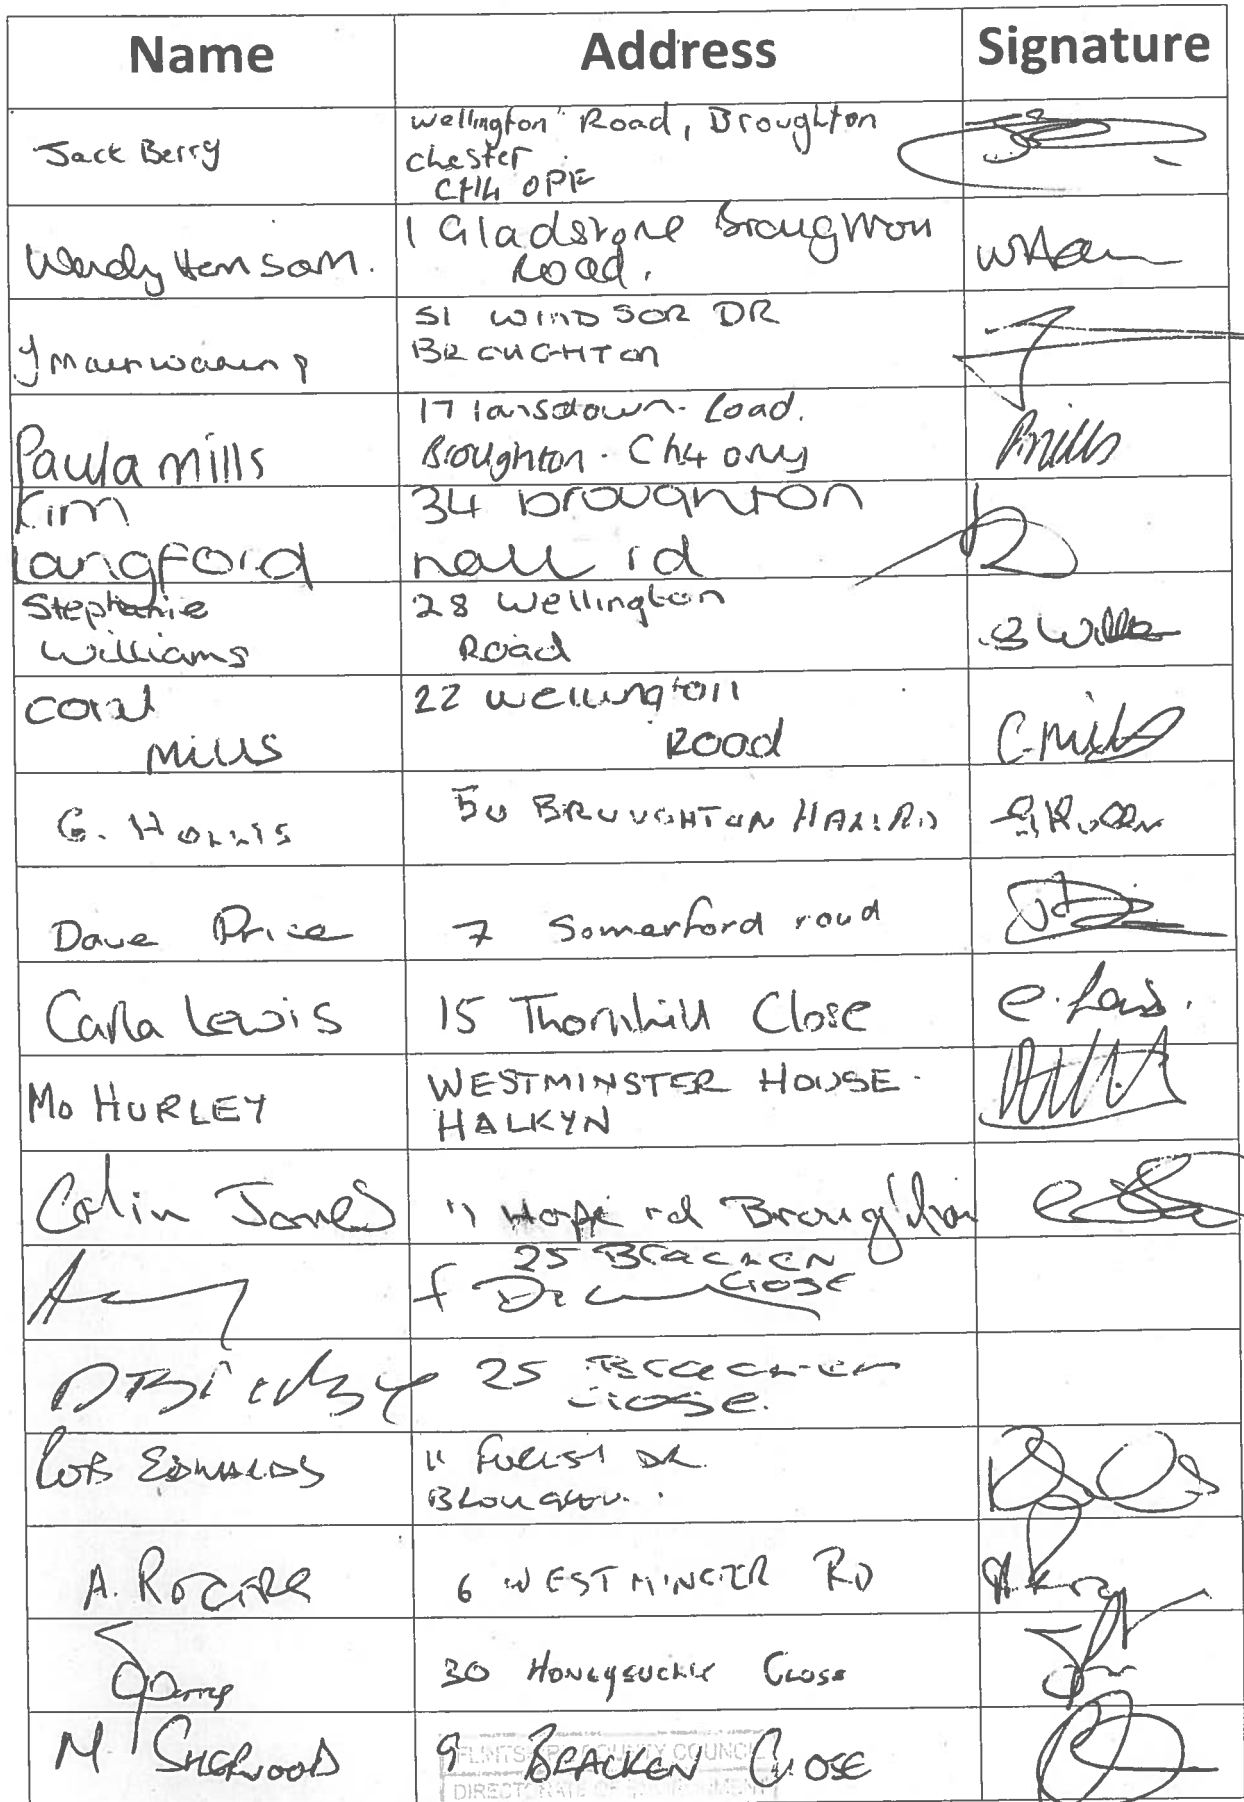 Name Address Signature
Jack Berry
Wellington Road, Broughton
Chester
CH4 0PF
Wendy Hensom.
1 Gladstone Broughton
Road.
51 WINDSOR DR
BROUGHTON
J Mainwaring
17 lansdown. Road.
Broughton. CH4
Paula Mills
PMills
Kim
Langford
34 broughton
hall rd
Stephanie
Williams
28 Wellington
Road
S Will
Coral
Mills
22 Wellington
Road
C. Mills
G. HOLLIS
50 BROUGHTON HALL RD
G Hollis
Dave Price
7 Somerford road
Carla Lewis
15 Thornhill Close
C. Lewis.
MO HURLEY
WESTMINSTER HOUSE.
HALKYN
Colin Jones
11 Hope rd Broughton
25 Bracken
Close
25 Bracken
Close.
ROB EDWARDS
11 FOREST DR.
BROUGHTON.
A. ROGERS
6 WESTMINSTER RD
30 HONEYSUCKLE CLOSE
M SHERWOOD
9 BRACKEN CLOSE
FLINTSHIRE COUNTY COUNCIL
DIRECTORATE OF ENVIRONMENT